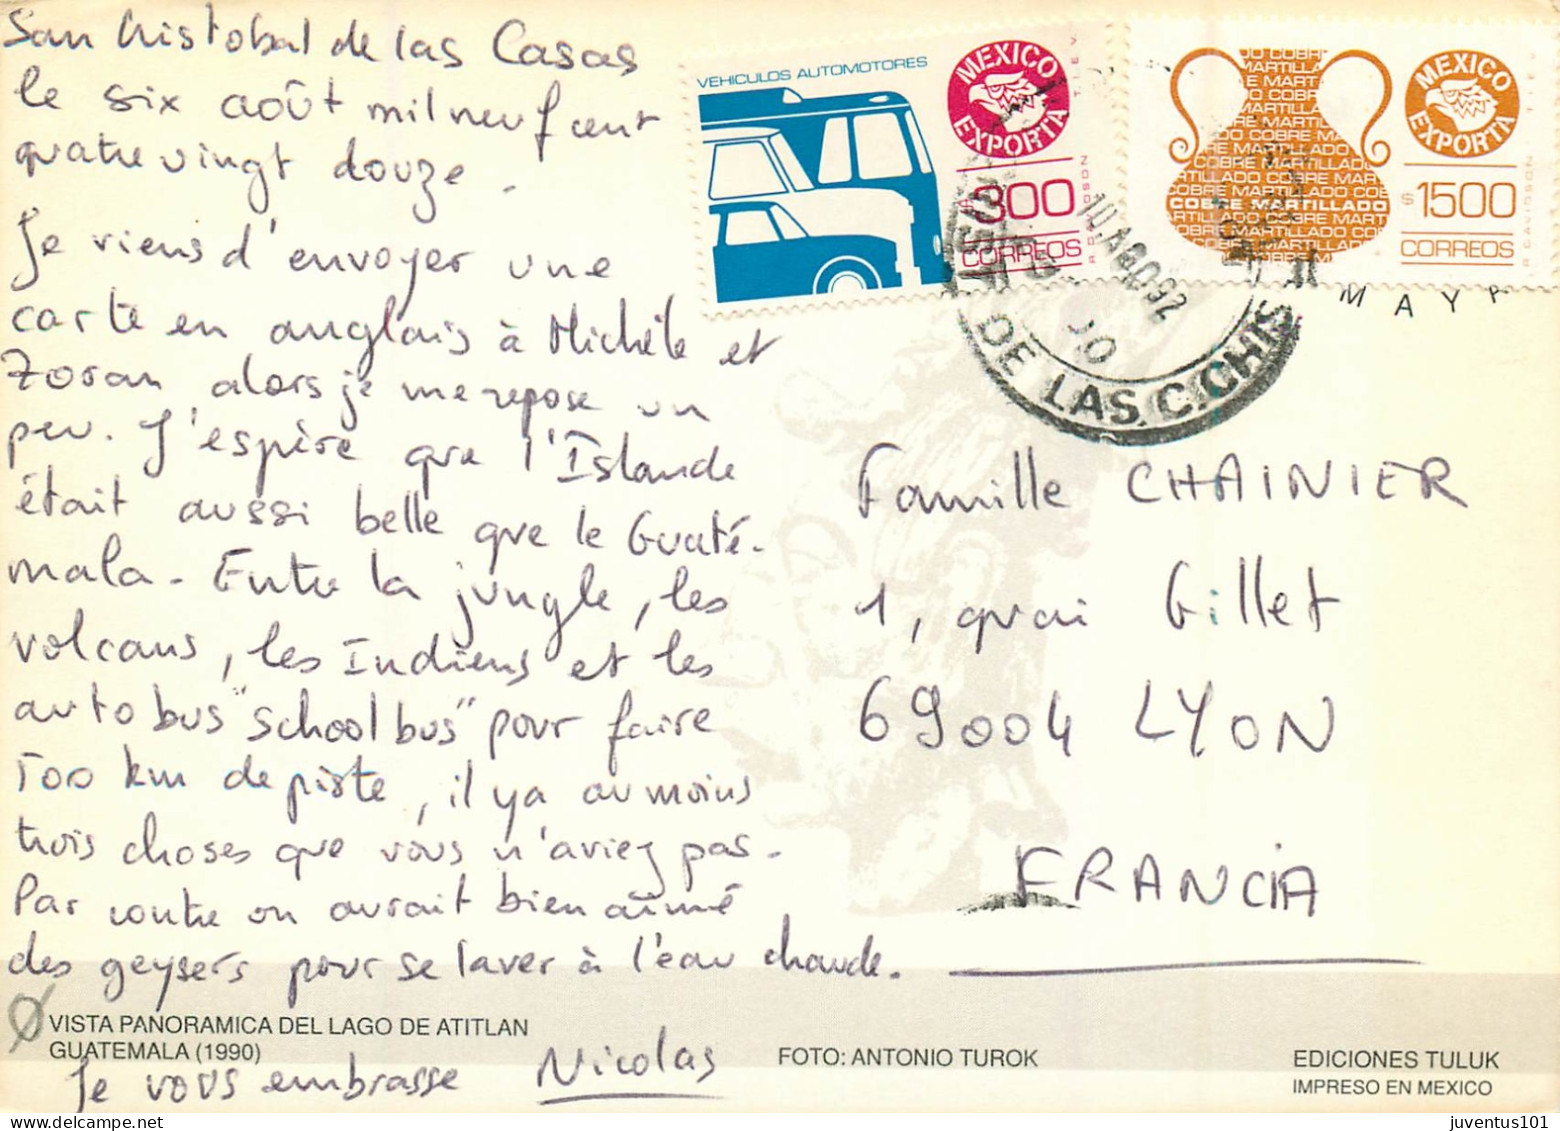 San Cristobal de las Casas
le six août mil neuf cent
quatre vingt douze.
Je viens d'envoyer une
carte en anglais à Michèle et
Zoran alors je me repose un
peu. J'espère que l'Islande
était aussi belle que le Guaté-
mala. Entre la jungle, les
volcans, les Indiens et les
autobus "school bus" pour faire
100 km de piste, il y a au moins
trois choses que vous n'aviez pas.
Par contre on aurait bien aimé
des geysers pour se laver à l'eau chaude.
Je vous embrasse Nicolas
VISTA PANORAMICA DEL LAGO DE ATITLAN
GUATEMALA (1990)
FOTO: ANTONIO TUROK
EDICIONES TULUK
IMPRESO EN MEXICO
VEHICULOS AUTOMOTORES
MEXICO EXPORTA
$300
CORREOS
MEXICO EXPORTA
COBRE MARTILLADO
$1500
CORREOS
10 AGO 92
DE LAS C. CHIS
MAYA
Famille CHAINIER
1, quai Gillet
69004 LYON
FRANCIA
juventus101